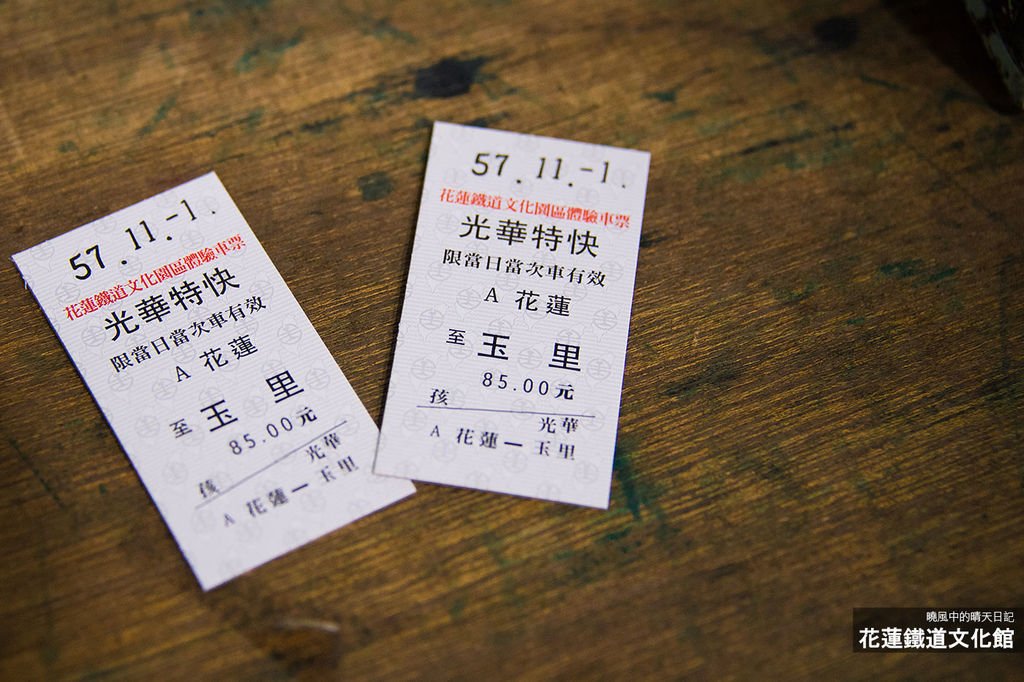 57.11.-1.
花蓮鐵道文化園區體驗車票
光華特快
限當日當次車有效
A 花蓮
至 玉 里
85.00元
孩
光華
A 花蓮－玉里
57.11.-1.
花蓮鐵道文化園區體驗車票
光華特快
限當日當次車有效
A 花蓮
至 玉 里
85.00元
孩
光華
A 花蓮－玉里
曉風中的晴天日記
花蓮鐵道文化館